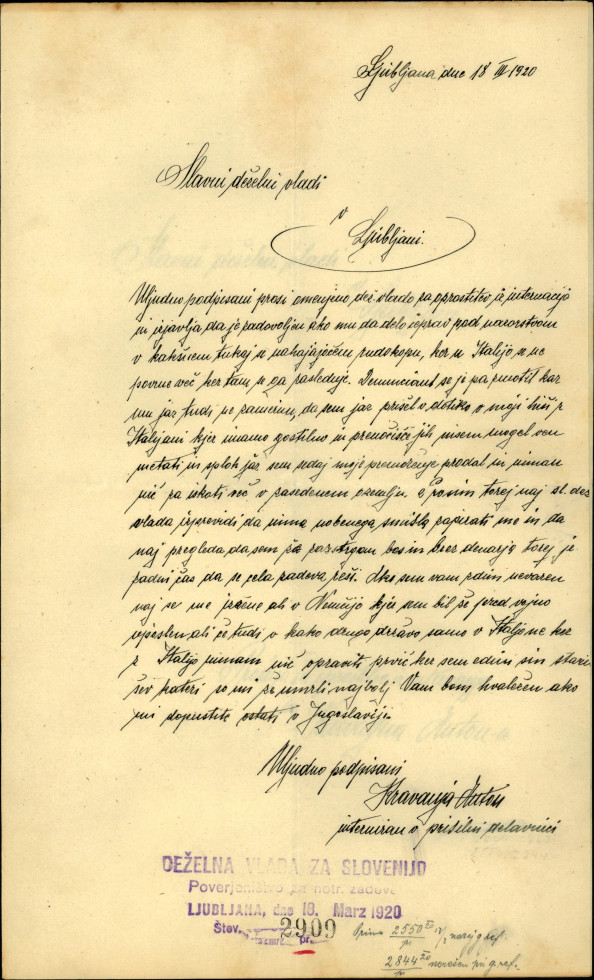 Ljubljana dne 18 III 1920
Slavni deželni vladi
v
Ljubljani.
Uljudno podpisani prosi omenjeno dež. vlado za oprostitev iz internacije
in izjavlja, da je zadovoljen ako mu da delo izprav pod nazorstvom
v kakšnem tukaj se nahajajočem rudokopu, ker v Italijo se ne
povrne več ker tam se ga zasleduje. Denunciant se je pa zmotil kar
mu jaz tudi ne zamerim, da sem jaz prišel v dotiko v moji hiši z
Italijani kjer imamo gostilno in prenočišče jih nisem mogel ven
metati in sploh jaz sem sedaj moje premoženje prodal in nimam
nič za iskati več v zasedenem ozemlju. Prosim torej naj sl. dež
vlada izprevidi da nima nobenega smisla zapirati me in da
naj pregleda, da sem že raztrgan bos in brez denarja torej je
zadni čas da se cela zadeva reši. Ako sem vam zdim nevaren
naj se me izžene ali v Nemčijo kjer sem bil še pred vojno
vposlen ali če tudi v kako drugo državo samo v Italijo ne ker
z Italijo nimam nič opraviti prvič ker sem edini sin stari
šev kateri so mi že umrli najbolj Vam bom hvaležen ako
mi dopustite ostati v Jugoslaviji.
Uljudno podpisani
Kravanja Anton
interniran v prisilni delavnici
DEŽELNA VLADA ZA SLOVENIJO
Poverjeništvo za notr. zadeve
LJUBLJANA, dne 18. Marz 1920
Štev. 2909
pr.
2550
2844